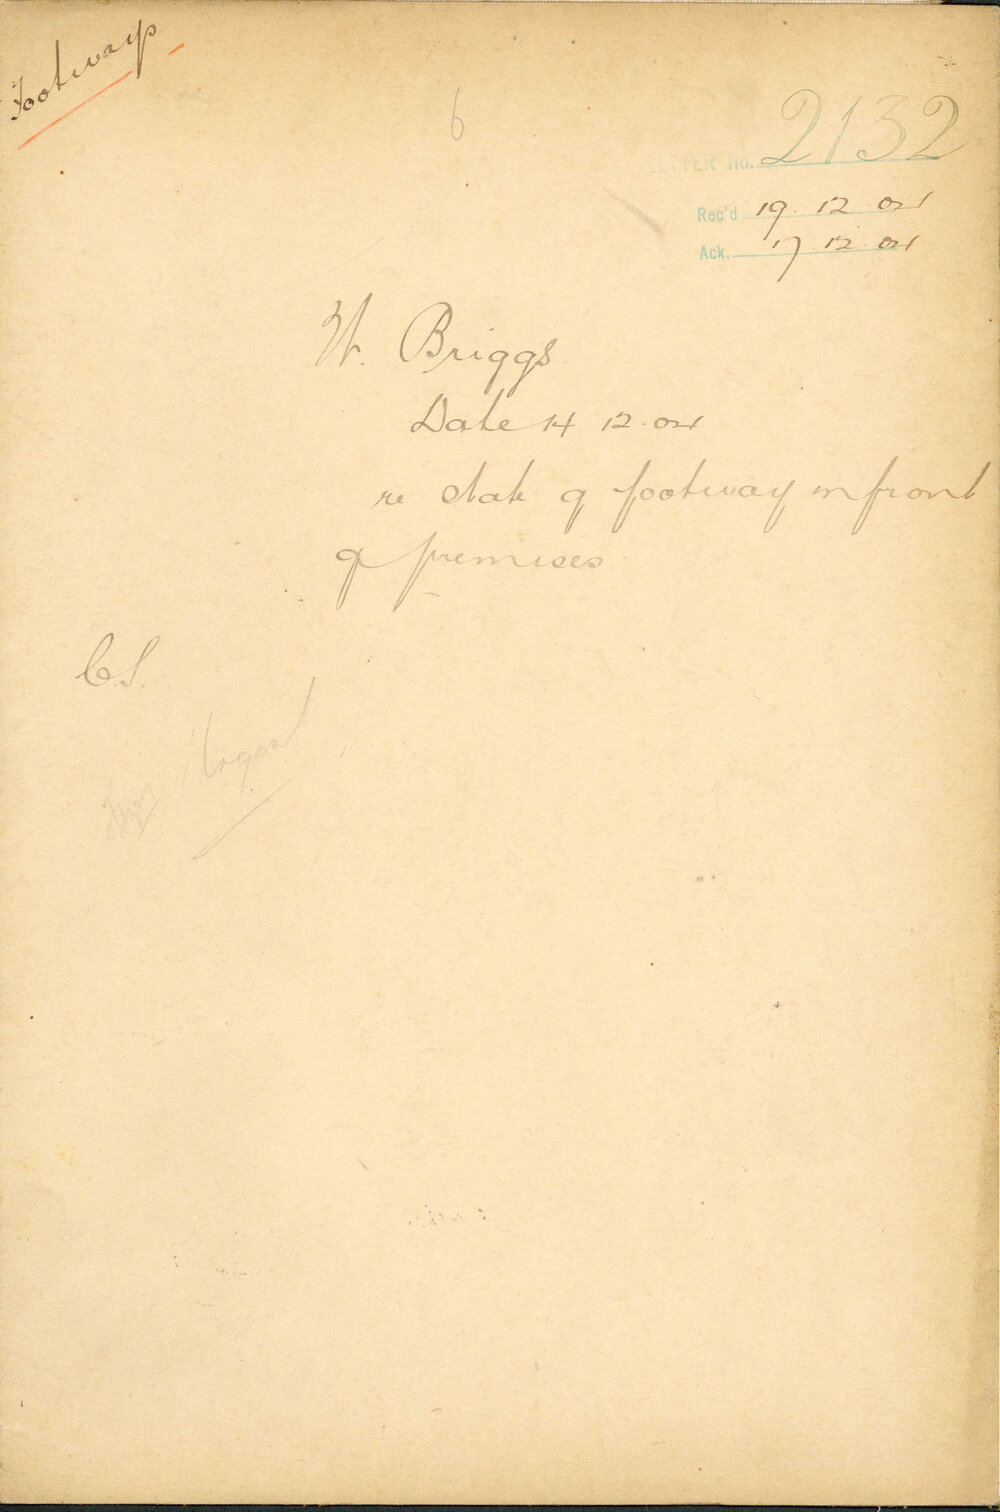 Footways
6
LETTER No. 2132
Rec'd 19. 12. 04
Ack. 17 12. 04
W. Briggs
Date 14. 12. 04
re state of footway in front
of premises
C.S.